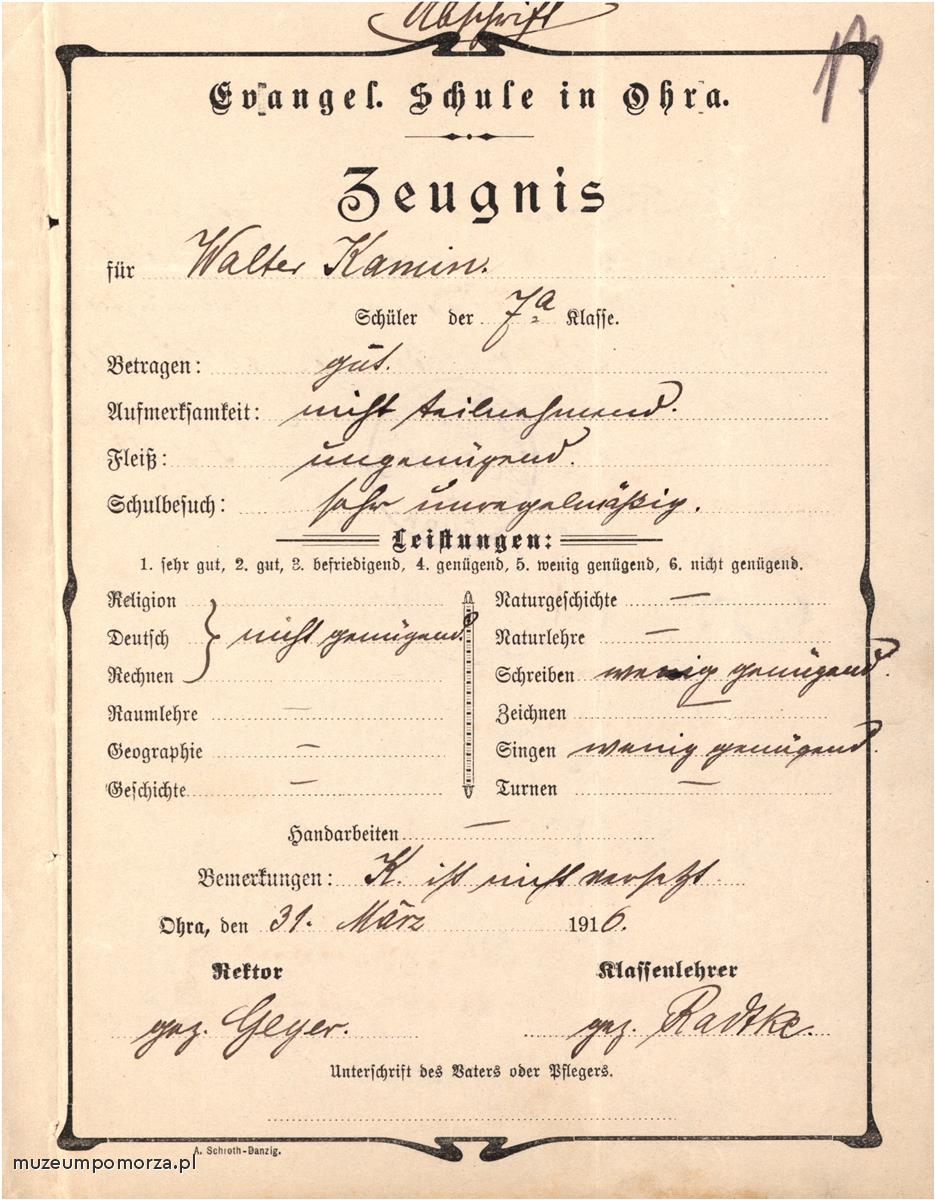 Abschrift
Evangel. Schule in Ohra.
Zeugnis
für Walter Kamin.
Schüler der 7a Klasse.
Betragen: gut.
Aufmerksamkeit: nicht teilnehmend.
Fleiß: ungenügend.
Schulbesuch: sehr unregelmäßig.
Leistungen:
1. sehr gut, 2. gut, 3. befriedigend, 4. genügend, 5. wenig genügend, 6. nicht genügend.
Religion
Deutsch } nicht genügend
Rechnen
Raumlehre —
Geographie —
Geschichte —
Naturgeschichte —
Naturlehre —
Schreiben wenig genügend.
Zeichnen —
Singen wenig genügend.
Turnen —
Handarbeiten —
Bemerkungen: K. ist nicht versetzt
Ohra, den 31. März 1916.
Rektor
gez. Geyer.
Klassenlehrer
gez. Radtke.
Unterschrift des Vaters oder Pflegers.
A. Schroth-Danzig.
muzeumpomorza.pl